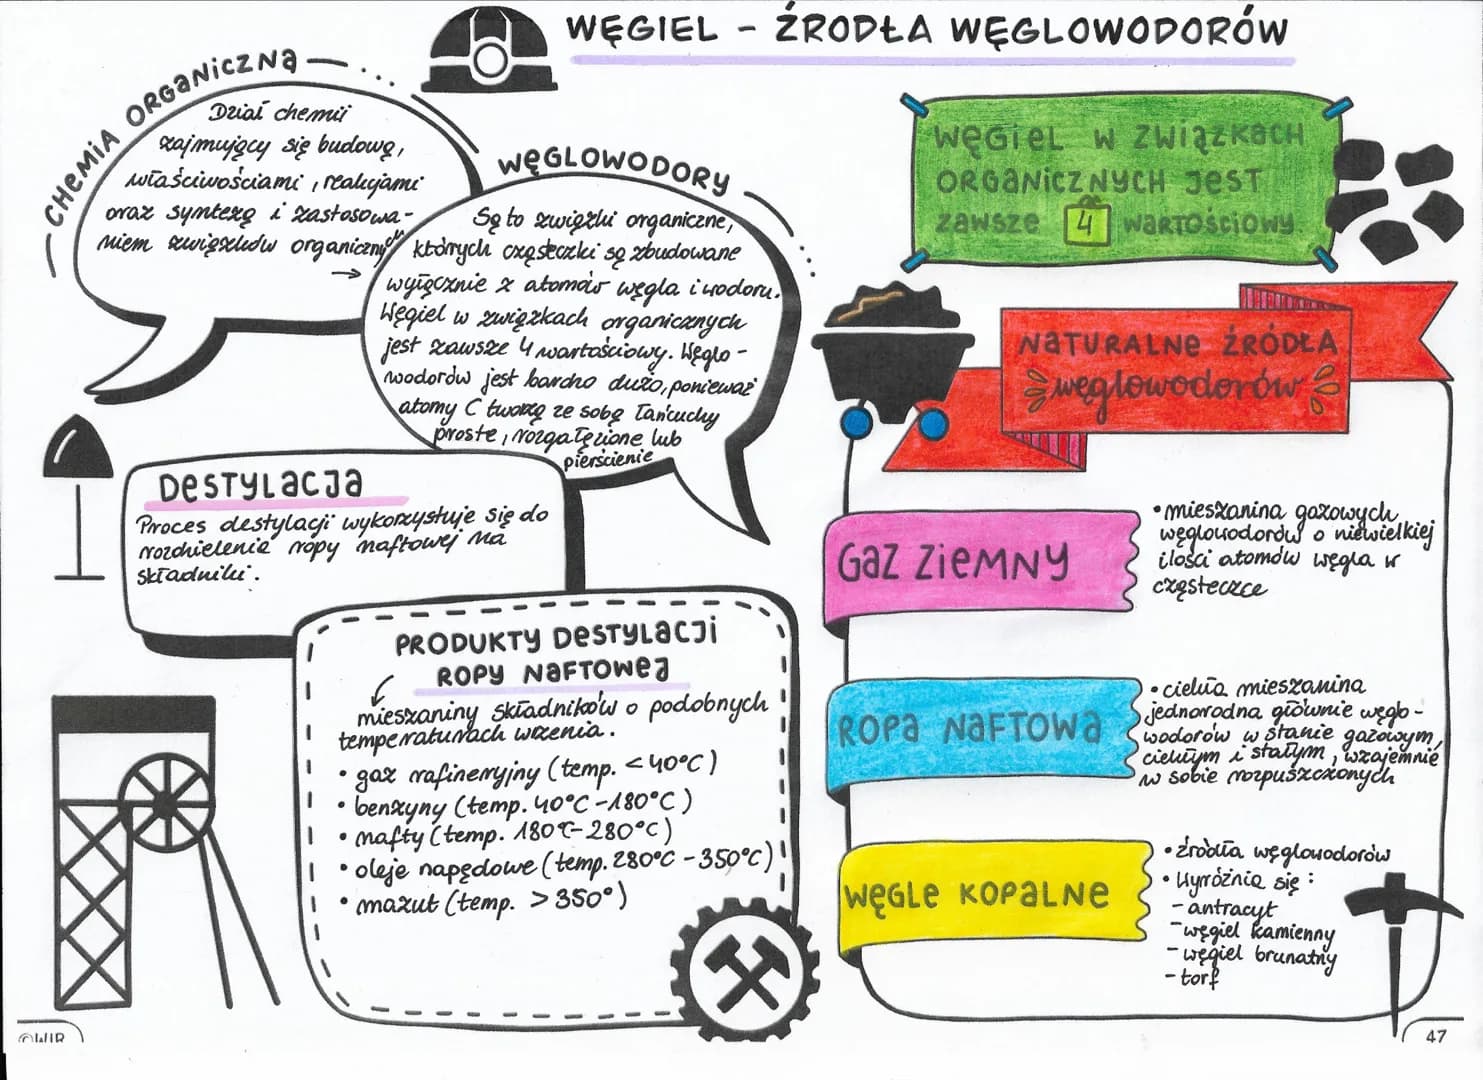 WĘGIEL - ŹRODŁA WĘGLOWODORÓW
CHEMIA ORGANICZNA
Dział chemii
zajmujący się budową,
właściwościami, reakcjami
oraz syntezą i zastosowa-
niem związków organicznych
WĘGLOWODORY
Są to związki organiczne,
których cząsteczki są zbudowane
wyłącznie z atomów węgla i wodoru.
Węgiel w związkach organicznych
jest zawsze 4 wartościowy. Węglo-
wodorów jest bardzo dużo, ponieważ
atomy C tworzą ze sobą łańcuchy
proste, rozgałęzione lub
pierścienie
DESTYLACJA
Proces destylacji wykorzystuje się do
rozdzielenia ropy naftowej na
składniki.
PRODUKTY DESTYLACJI
ROPY NAFTOWEJ
mieszaniny składników o podobnych
temperaturach wrzenia.
• gaz rafineryjny (temp. < 40°C)
• benzyny (temp. 40°C - 180°C)
• nafty (temp. 180°C - 280°C)
• oleje napędowe (temp. 280°C - 350°C)
• mazut (temp. > 350°)
WĘGIEL W ZWIĄZKACH
ORGANICZNYCH JEST
ZAWSZE 4 WARTOŚCIOWY
NATURALNE ŹRÓDŁA
węglowodorów
GAZ ZIEMNY
• mieszanina gazowych
węglowodorów o niewielkiej
ilości atomów węgla w
cząsteczce
ROPA NAFTOWA
• ciekła mieszanina
jednorodna głównie węglo-
wodorów w stanie gazowym,
ciekłym i stałym, wzajemnie
w sobie rozpuszczonych
WĘGLE KOPALNE
• źródła węglowodorów
• Wyróżnia się:
- antracyt
- węgiel kamienny
- węgiel brunatny
- torf
©WIR
47